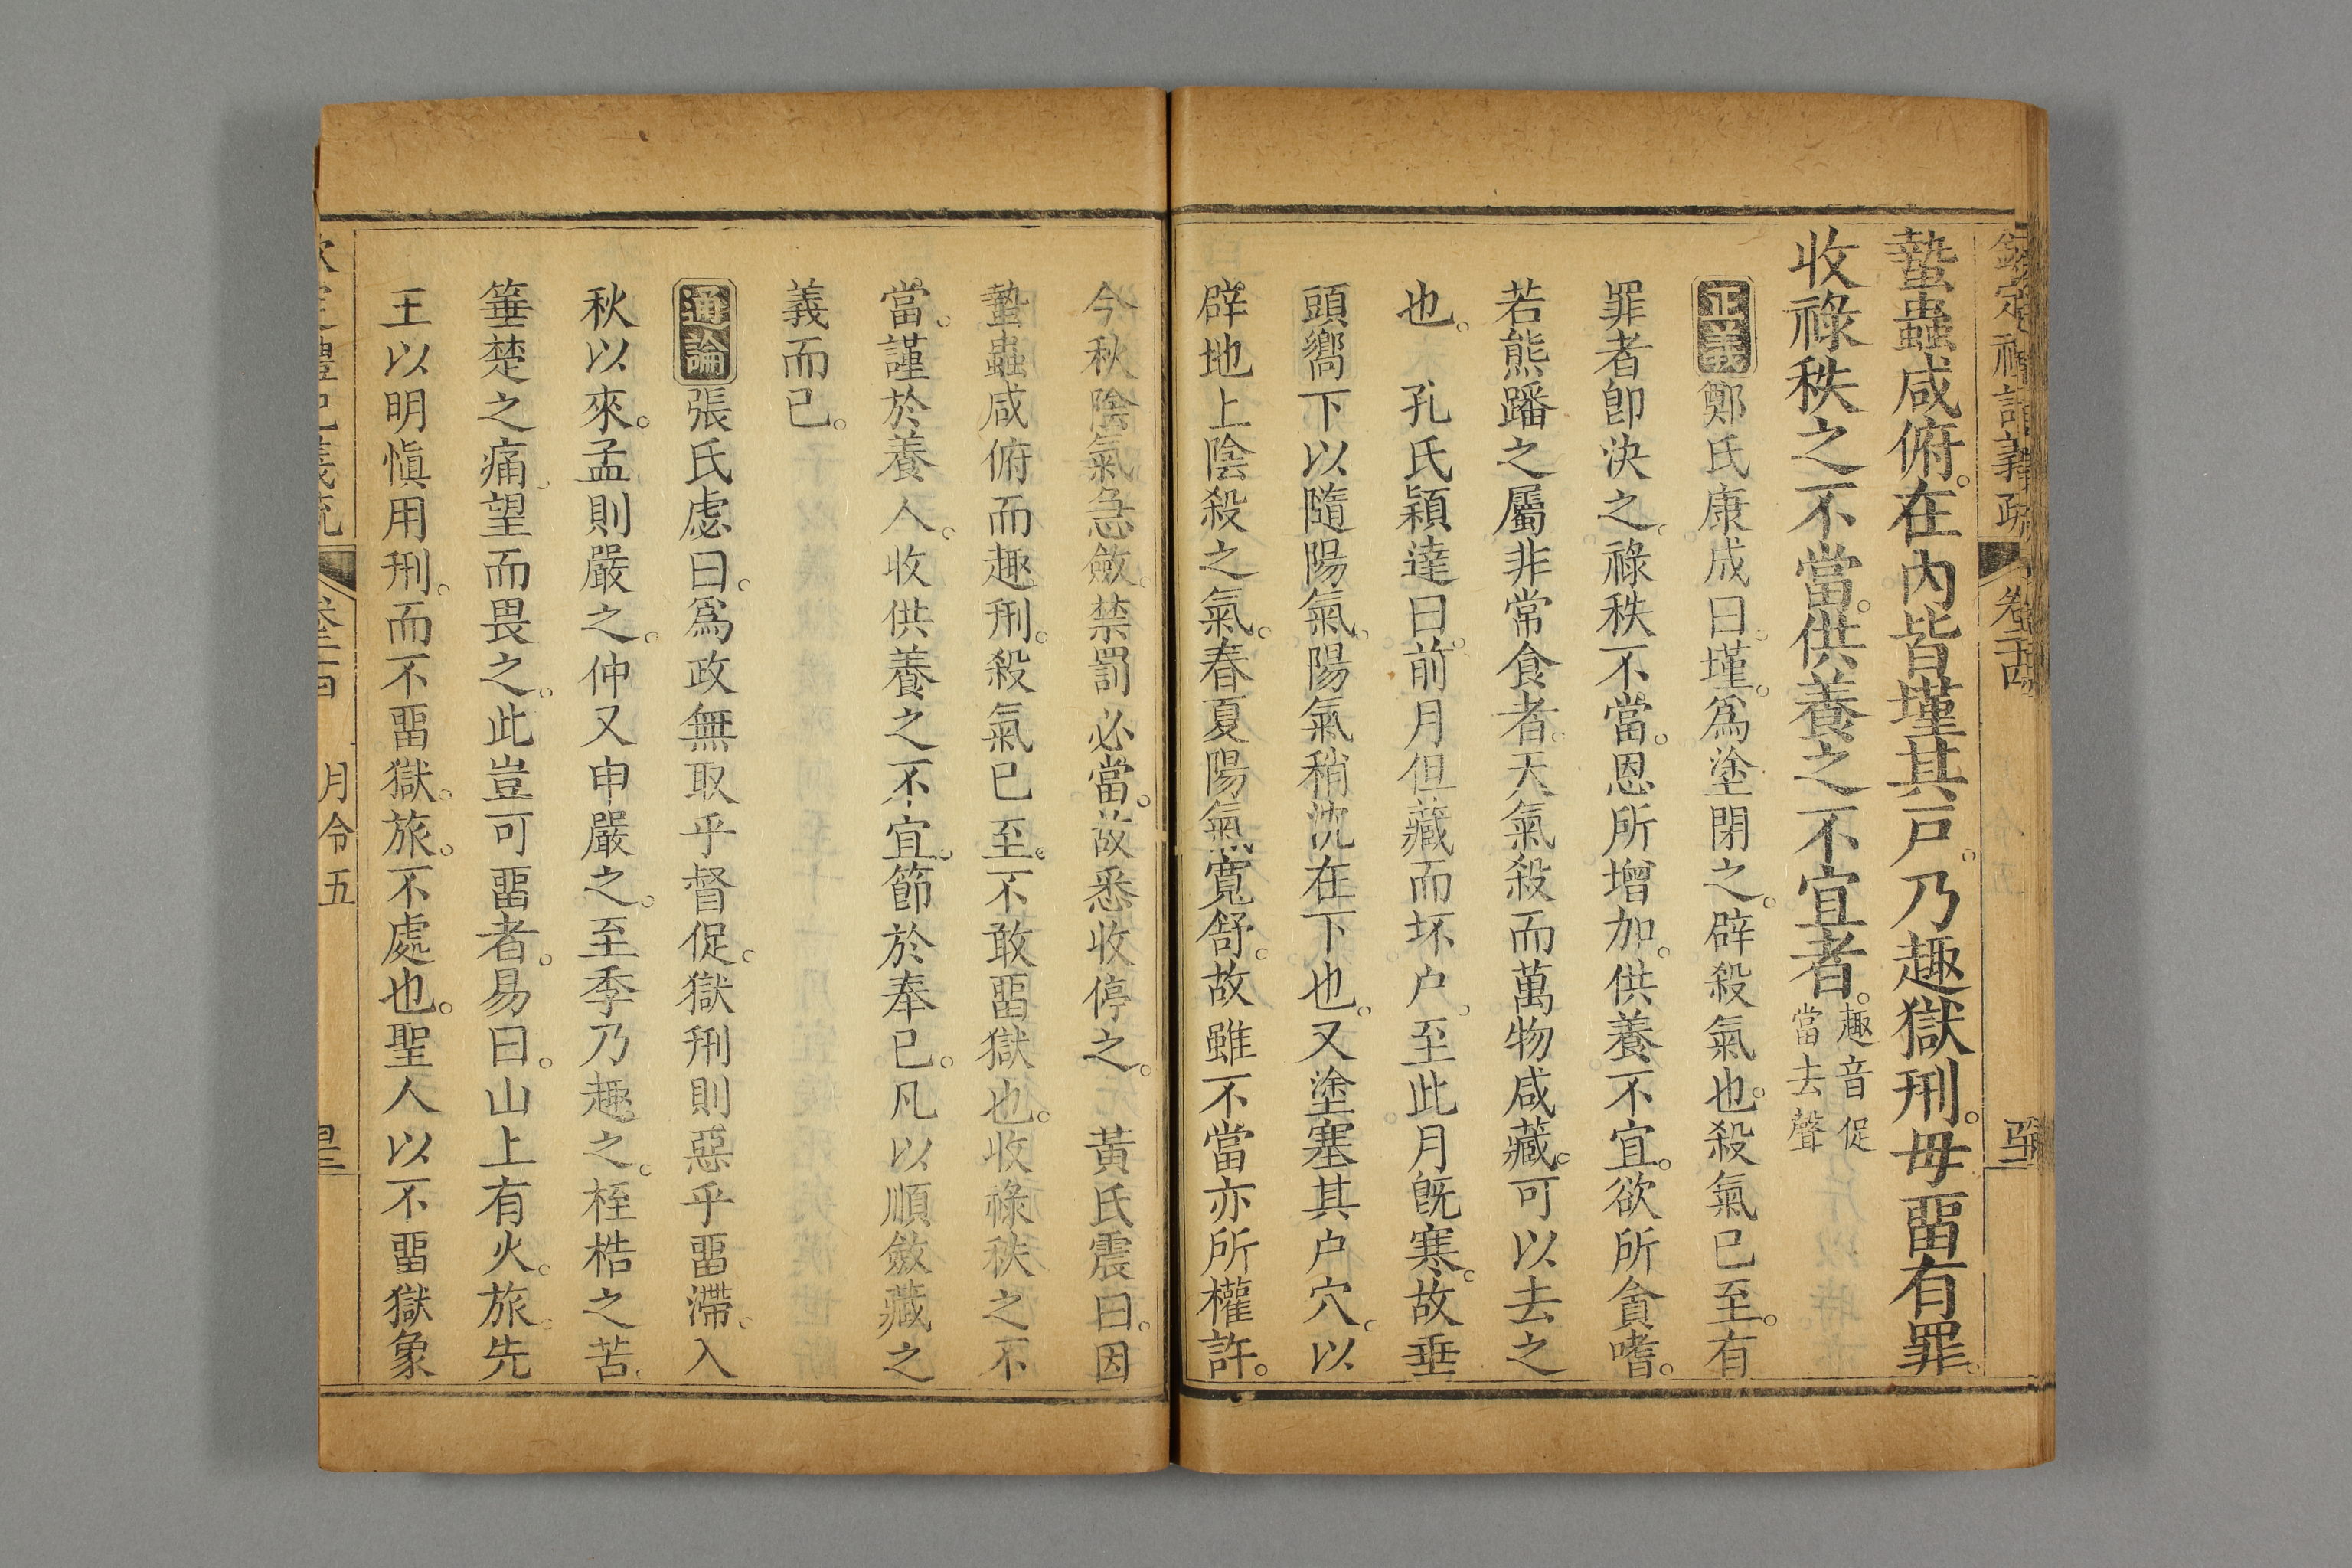 蟄蟲咸俯。在內皆墐其戸。乃趣獄刑。毋畱有罪。
收祿秩之不當。供養之不宜者。趣音促
當去聲
正義鄭氏康成曰。墐。爲塗閉之。辟殺氣也。殺氣已至。有
罪者卽決之。祿秩不當。恩所增加。供養不宜。欲所貪嗜。
若熊蹯之屬非常食者。天氣殺而萬物咸藏。可以去之
也。 孔氏穎達曰。前月但藏而坏户。至此月旣寒。故垂
頭嚮下以隨陽氣。陽氣稍沈在下也。又塗塞其户穴。以
辟地上陰殺之氣。春夏陽氣寬舒。故雖不當亦所權許。
今秋陰氣急斂。禁罰必當。故悉收停之。 黃氏震曰。因
蟄蟲咸俯而趣刑。殺氣已至。不敢畱獄也。收祿秩之不
當。謹於養人。收供養之不宜。節於奉已。凡以順斂藏之
義而已。
通論張氏虙曰。爲政無取乎督促。獄刑則惡乎畱滯。入
秋以來。孟則嚴之。仲又申嚴之。至季乃趣之。桎梏之苦。
箠楚之痛。望而畏之。此豈可畱者。易曰。山上有火。旅。先
王以明愼用刑。而不畱獄。旅。不處也。聖人以不畱獄象
月令五